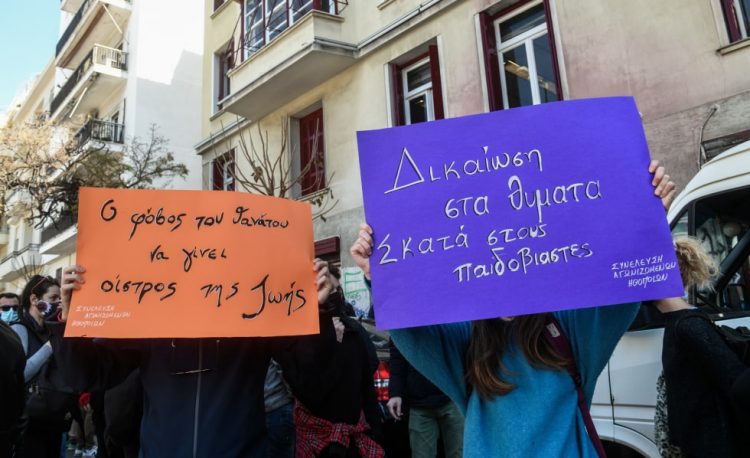 Ο φόβος του θανάτου
να γίνει
οίστρος της ζωής
ΣΥΝΕΛΕΥΣΗ
ΑΓΩΝΙΖΟΜΕΝΩΝ
ΗΘΟΠΟΙΩΝ
Δικαίωση
στα θύματα
Σκατά στους
παιδοβιαστές
ΣΥΝΕΛΕΥΣΗ
ΑΓΩΝΙΖΟΜΕΝΩΝ
ΗΘΟΠΟΙΩΝ